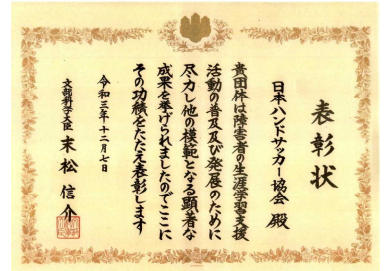 表彰状
日本ハンドサッカー協会 殿
貴団体は障害者の生涯学習支援
活動の普及及び発展のために
尽力し他の模範となる顕著な
成果を挙げられましたのでここに
その功績をたたえ表彰します
令和三年十二月七日
文部科学大臣 末松信介